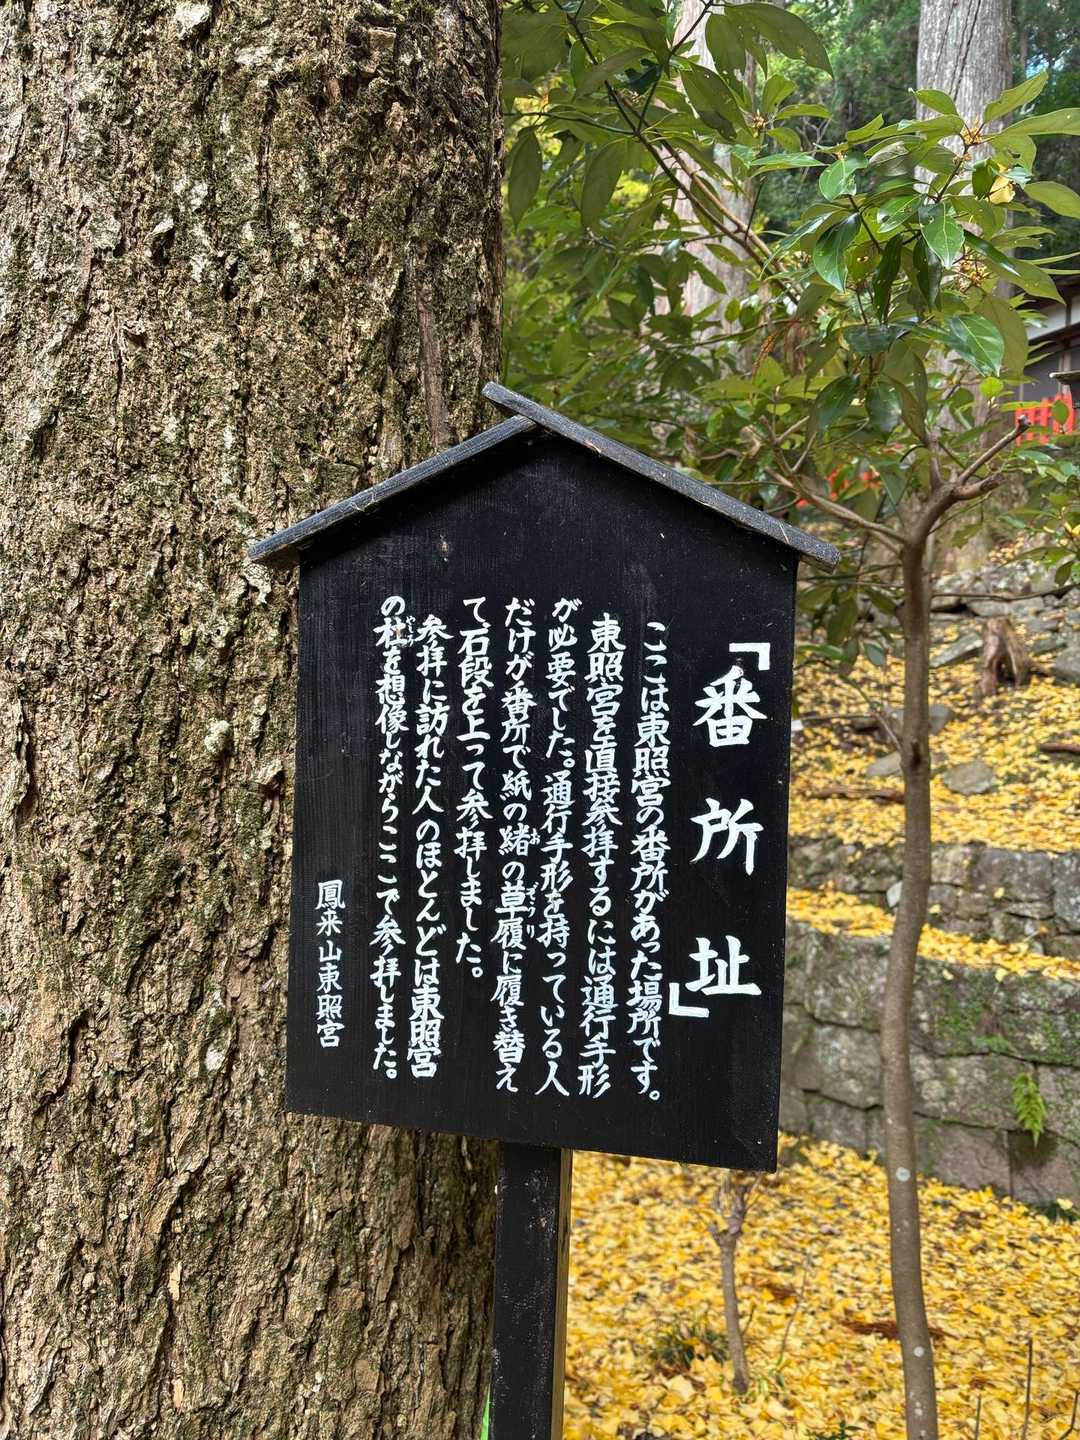 「番所址」
ここは東照宮の番所があった場所です。
東照宮を直接参拝するには通行手形
が必要でした。通行手形を持っている人
だけが番所で紙の緒の草履に履き替え
て石段を上って参拝しました。
参拝に訪れた人のほとんどは東照宮
の社を想像しながらここで参拝しました。
鳳来山東照宮